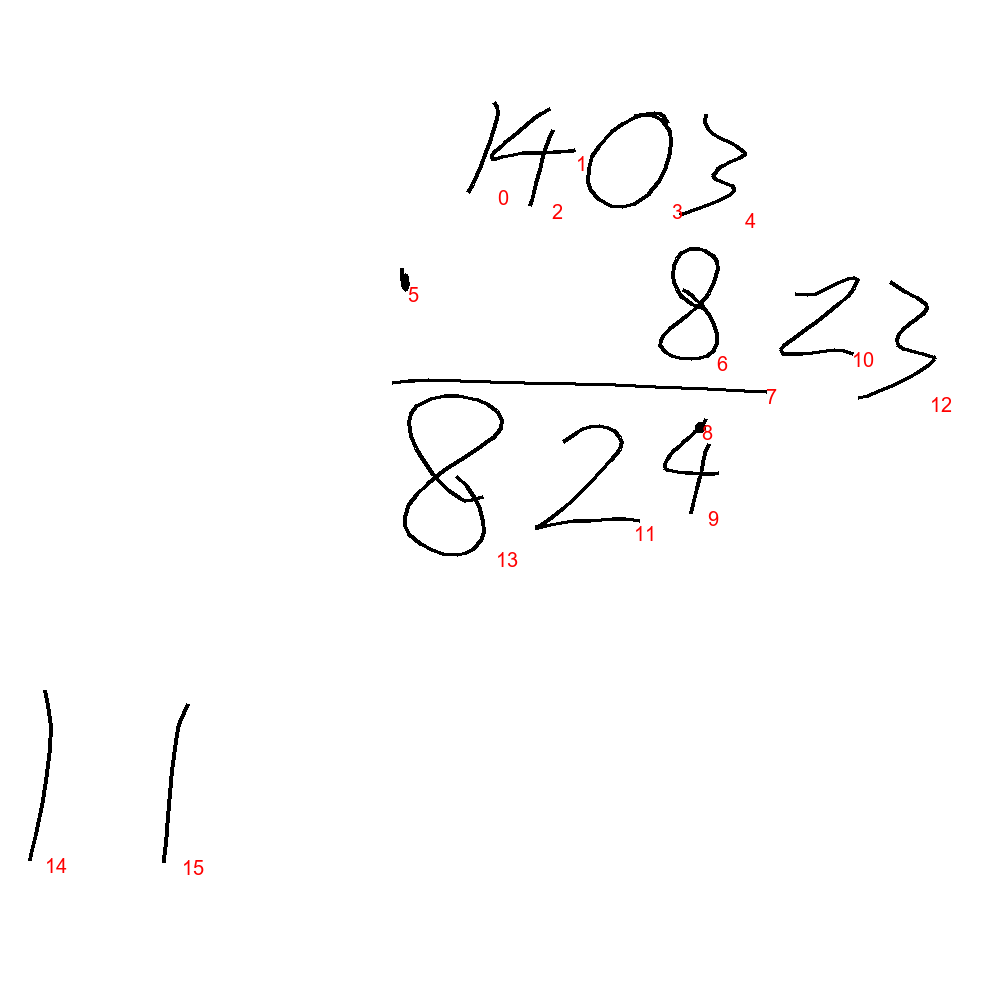 1403
0 1 2 3 4
· 8 23
5 6 10 12
7
824
8 9 11 13
1 1
14 15